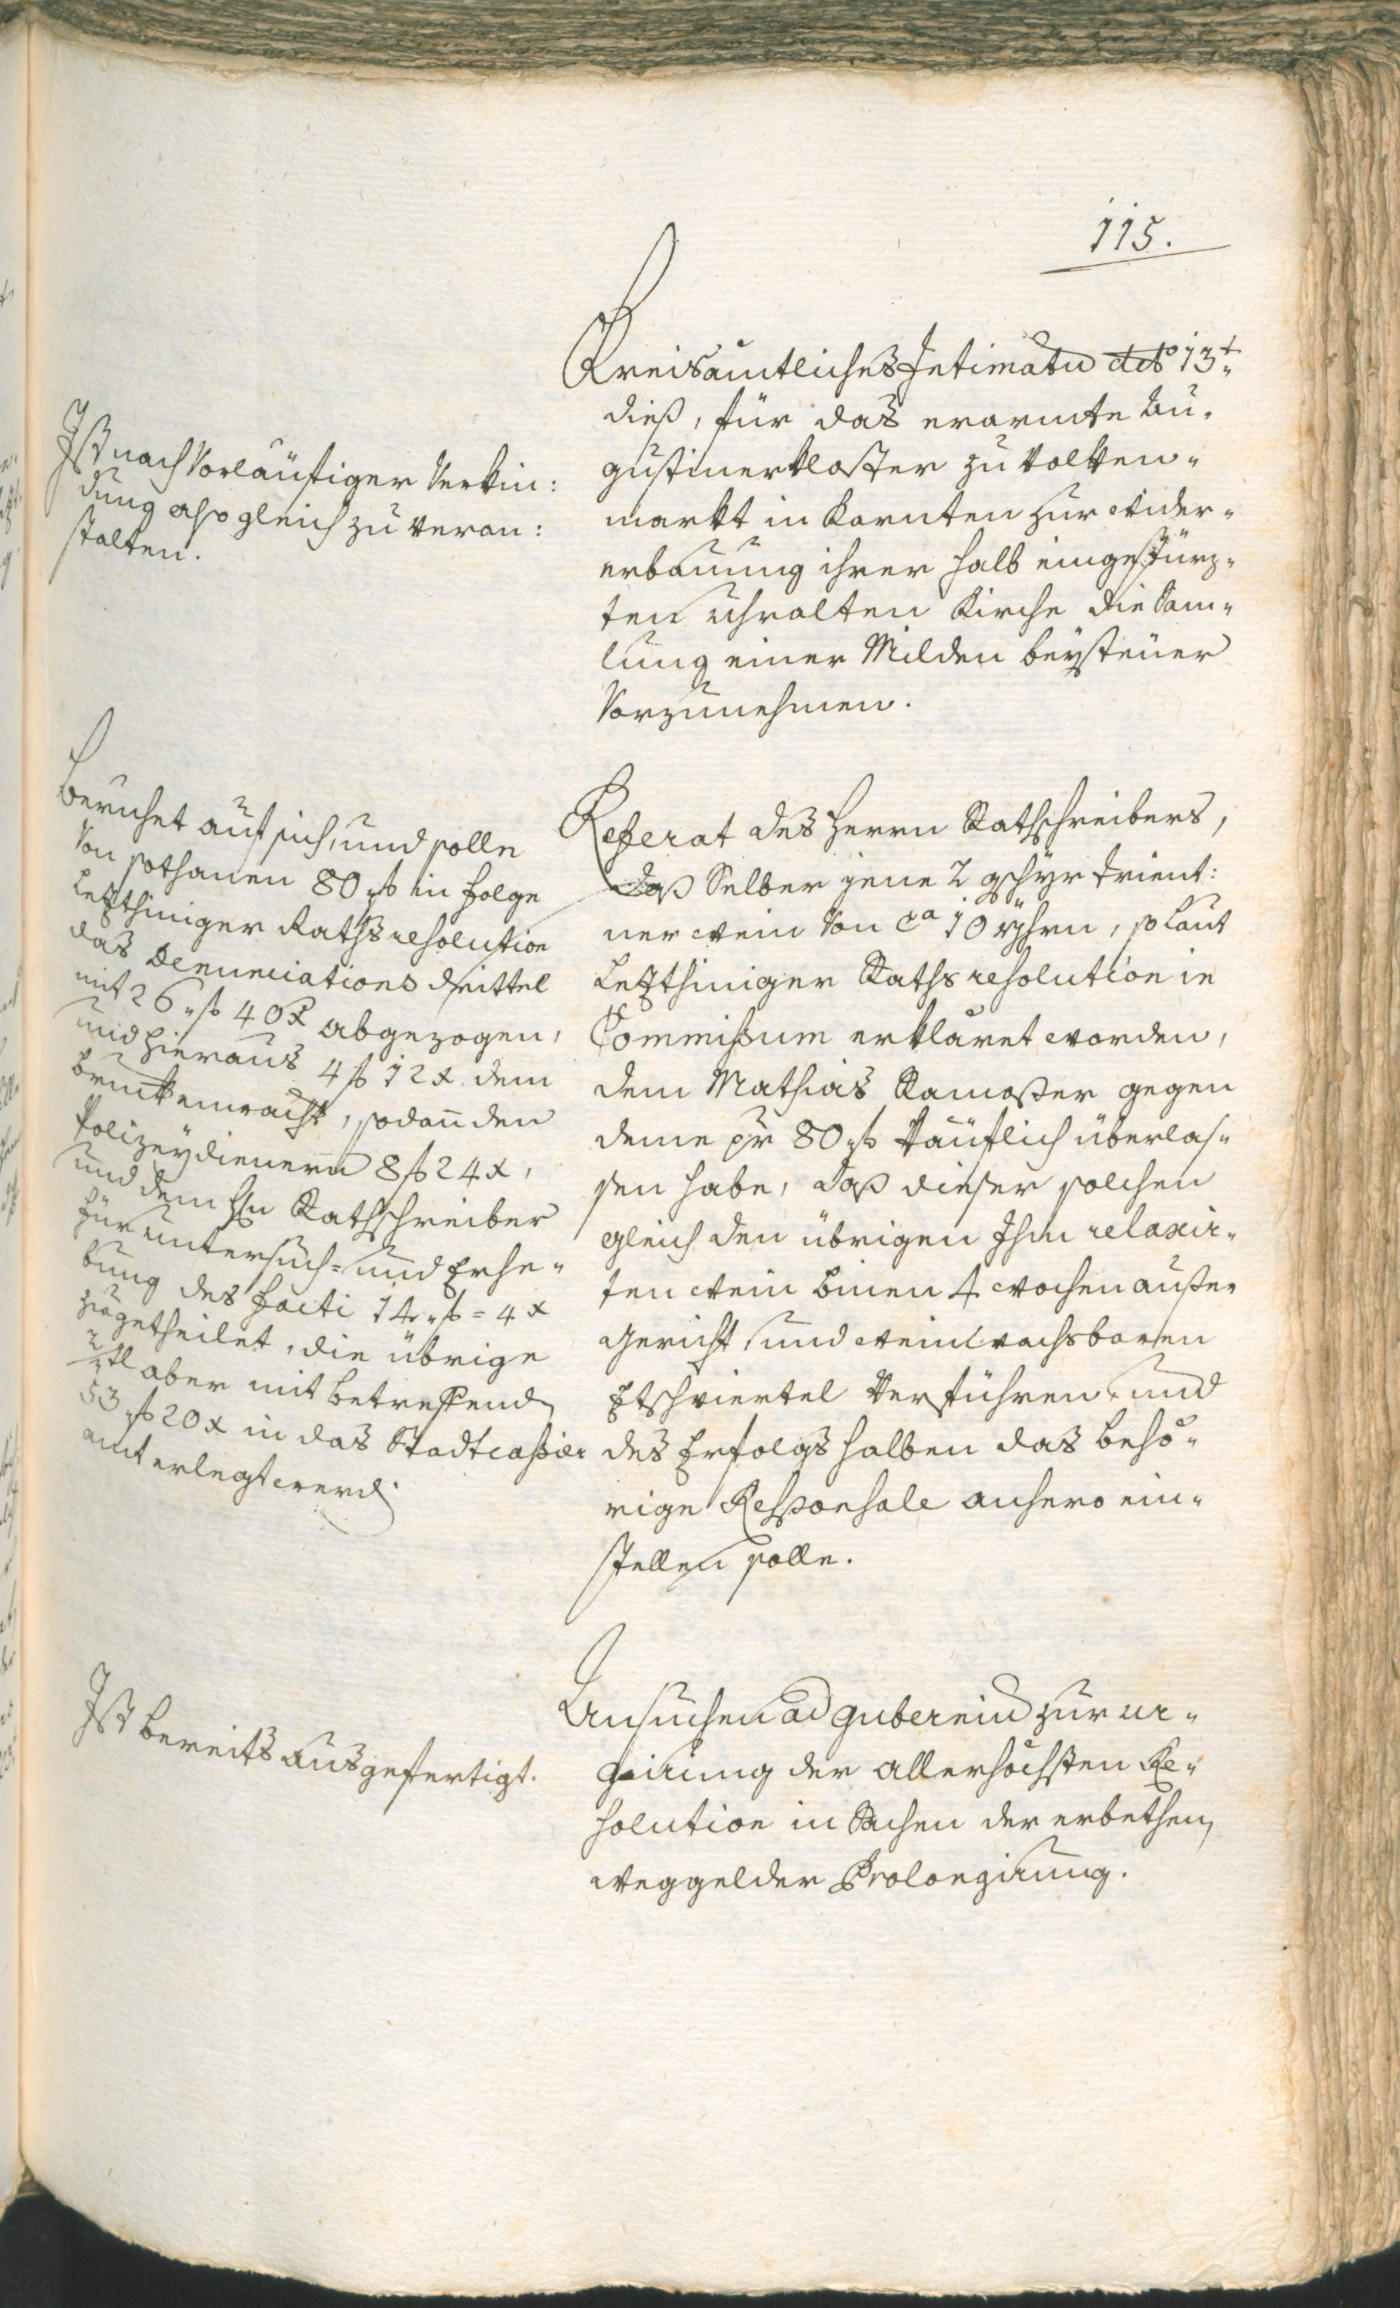 115.
Kreisamtliches Intimatum ddto 13t.
dieß, für das erarmte Au-
gustinerkloster zu Volken-
markt in Karnten zur wider-
erbauung ihrer halb eingestürz-
ten uhralten Kirche die Sam-
lung einer Milden beÿsteuer
Vorzunehmen.
Ist nach Vorläufiger Verkin:
dung also gleich zu veran:
stalten.
Referat des Herrn Rathschreibers,
daß Selber jene 2 gschÿr trient:
ner wein Von ca 10 ÿhrn, so laut
Letzthiniger Raths resolution in
Commißum erkläret worden,
dem Mathias Ramoser gegen
deme pr 80 f käuflich überlas-
sen habe, daß dieser solchen
gleich den übrigen Ihm relaxir-
ten wein binen 4 wochen außer
gericht und weinwachsbaren
Etschviertel Verführen und
des Erfolgs halben das behö-
rige Responsale anhero ein-
stellen solle.
Beruhet auf sich, und solle
Von sothanen 80 f in folge
Letzthiniger Raths resolution
das Denunciations drittel
mit 26 f 40 x abgezogen,
und hieraus 4 f 12 x dem
bruckenwacht, sodann den
Polizeÿdienern 8 f 24 x,
und dem Hn Rathschreiber
für untersuch- und Erhe-
bung des facti 14 f = 4 x
zugetheilet, die übrige
2/3tl aber mit betreffend
53 f 20 x in das Stadtcassier
amt erlegt werd.
Ansuchen ad gubernium zur ur-
girung der allerhöchsten Re-
solution in Sachen der erbethen
weggelder Prolongirung.
Ist bereits ausgefertigt.